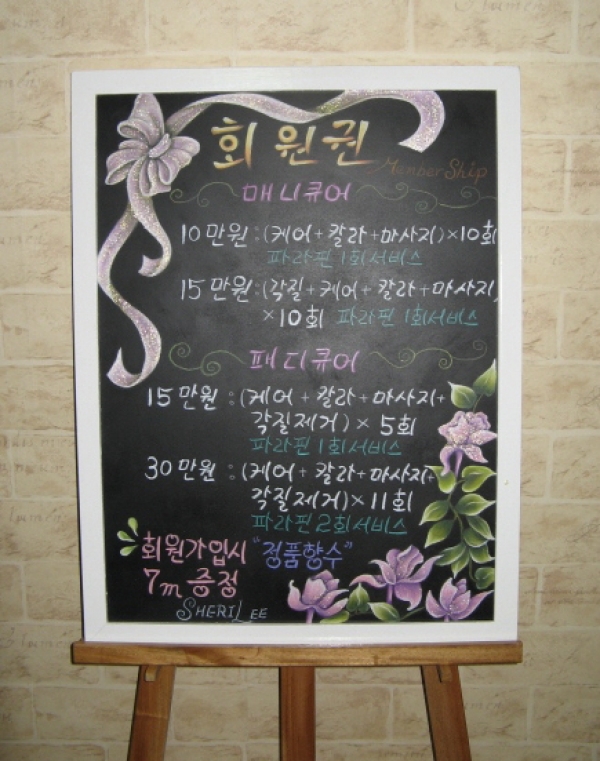 회원권
MemberShip
매니큐어
10만원 : (케어+칼라+마사지)×10회
파라핀 1회서비스
15만원 : (각질+케어+칼라+마사지)
×10회 파라핀 1회서비스
패디큐어
15만원 : (케어+칼라+마사지+
각질제거)×5회
파라핀 1회서비스
30만원 : (케어+칼라+마사지+
각질제거)×11회
파라핀 2회서비스
회원가입시 "정품향수"
7m 증정
SHERILEE